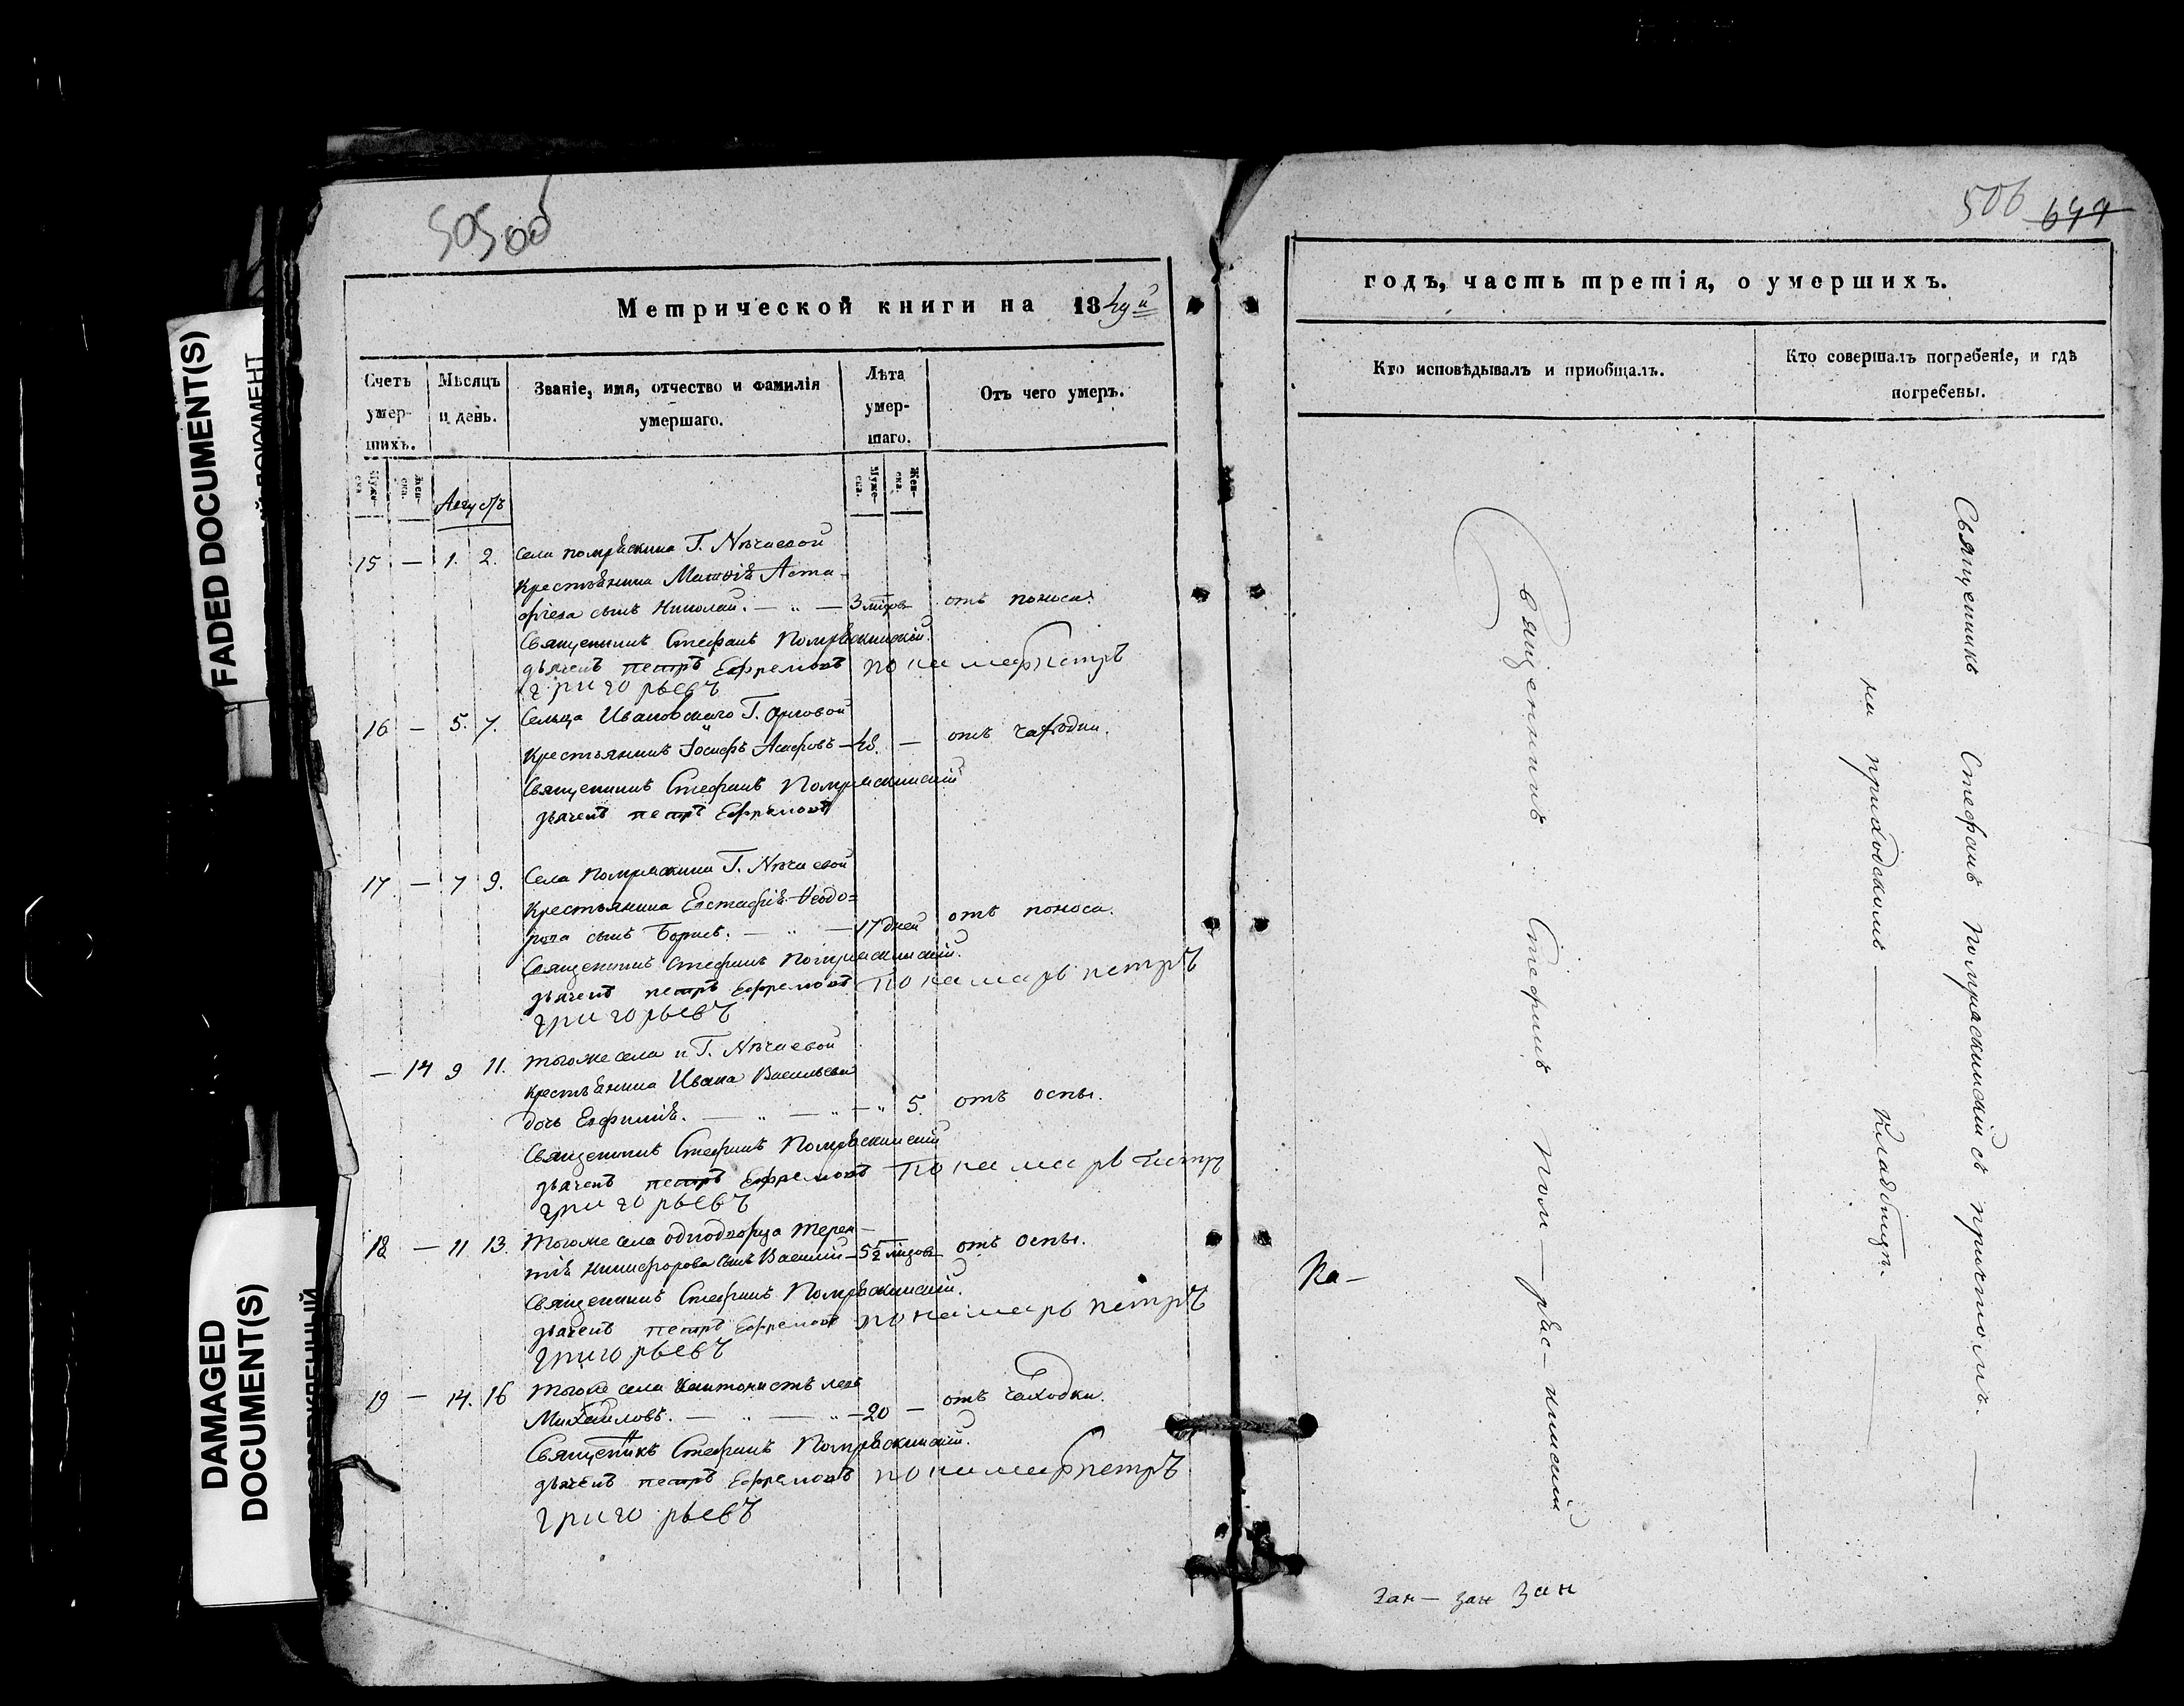 FADED DOCUMENT(S)
DAMAGED
DOCUMENT(S)
505об
Метрической книги на 1849й
Счетъ умершихъ.
Мѣсяцъ и день.
Званіе, имя, отчество и фамилія умершаго.
Лѣта умершаго.
Отъ чего умеръ.
Муже-
ска.
Жен-
ска.
Августъ
Муже-
ска.
Жен-
ска.
15 — 1. 2. Села Помряскина Г. Нѣчаевой
Крестьянина Матвія Аста-
фіева сынъ Николай. — „ — 3 отъ поноса.
Священникъ Стефанъ Помряскинскій.
дьячекъ петръ Ефремовъ пономарь петръ
григорьевъ
16 — 5. 7. Сельца Ивановскаго Г.
Крестьянинъ Іосифъ — 48. — отъ чаходки.
Священникъ Стефанъ Помряскинскій
дьячекъ петръ Ефремовъ
17 — 7 9. Села Помряскина Г. Нѣчаевой
Крестьянина Евстафія Ѳеодо=
рова сынъ Борисъ. — „ — 17 дней отъ поноса.
Священникъ Стефанъ Помряскинскій.
дьячекъ петръ Ефремовъ пономарь петръ
григорьевъ
— 14 9 11. Тогоже села и Г. Нѣчаевой
крестьянина Ивана Васильева
дочь Евфимія. — „ — „ — „ 5. отъ оспы.
Священникъ Стефанъ Помряскинскій
дьячекъ петръ Ефремовъ пономарь петръ
григорьевъ
18 — 11 13. Тогоже села однодворца Терен-
тія Никифорова сынъ Василій — 5½ отъ оспы.
Священникъ Стефанъ Помряскинскій.
дьячекъ петръ Ефремовъ пономарь петръ
григорьевъ
19 — 14. 16 Тогоже села Кантонистъ
Михайловъ. — „ — „ — 20 — отъ чаходки.
Священикъ Стефанъ Помряскинскій.
дьячекъ петръ Ефремовъ пономарь петръ
григорьевъ
506
годъ, часть третія, о умершихъ.
Кто исповѣдывалъ и пріобщалъ.
Кто совершалъ погребеніе, и гдѣ погребены.
Священникъ Стефанъ Пом — ряс — кинскій
Священникъ Стефанъ Помряскинскій съ причтомъ. —
— на приходскомъ — Кладбищѣ. —
Ка —
Зан — зан Зан